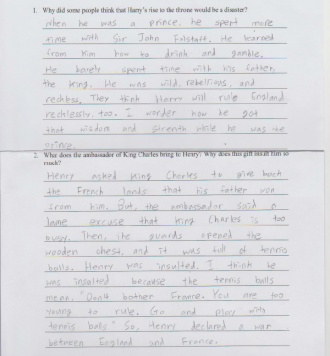 1. Why did some people think that Harry's rise to the throne would be a disaster?
When he was a prince, he spent more
time with Sir John Falstaff. He learned
from him how to drink and gamble.
He barely spent time with his father
the king. He was wild, rebellious, and
reckless. They think Henry will rule England
recklessly, too. I wonder how he got
that wisdom and strenth while he was
prince.
2. What does the ambassador of King Charles bring to Henry? Why does this gift insult him so
much?
Henry asked King Charles to give back
the French lands that his father won
from him. But, the ambassador said a
lame excuse that King Charles is too
busy. Then, the guards opened the
wooden chest, and it was full of tennis
balls. Henry was insulted. I think he
was insulted because the tennis balls
mean, "Don't bother France. You are too
young to rule. Go and play with
tennis balls." So, Henry declared a war
between England and France.